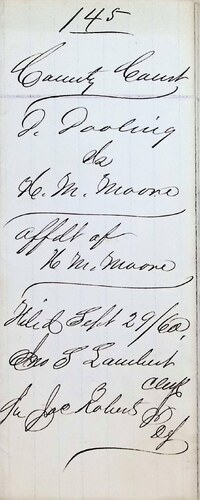 145
County Court
T. Dooling
vs
H. M. Moore
affdt of
H M. Moore
Filed Sept 29/60,
Jno S Lambert
Clerk
Jac Roberts Jr
Df